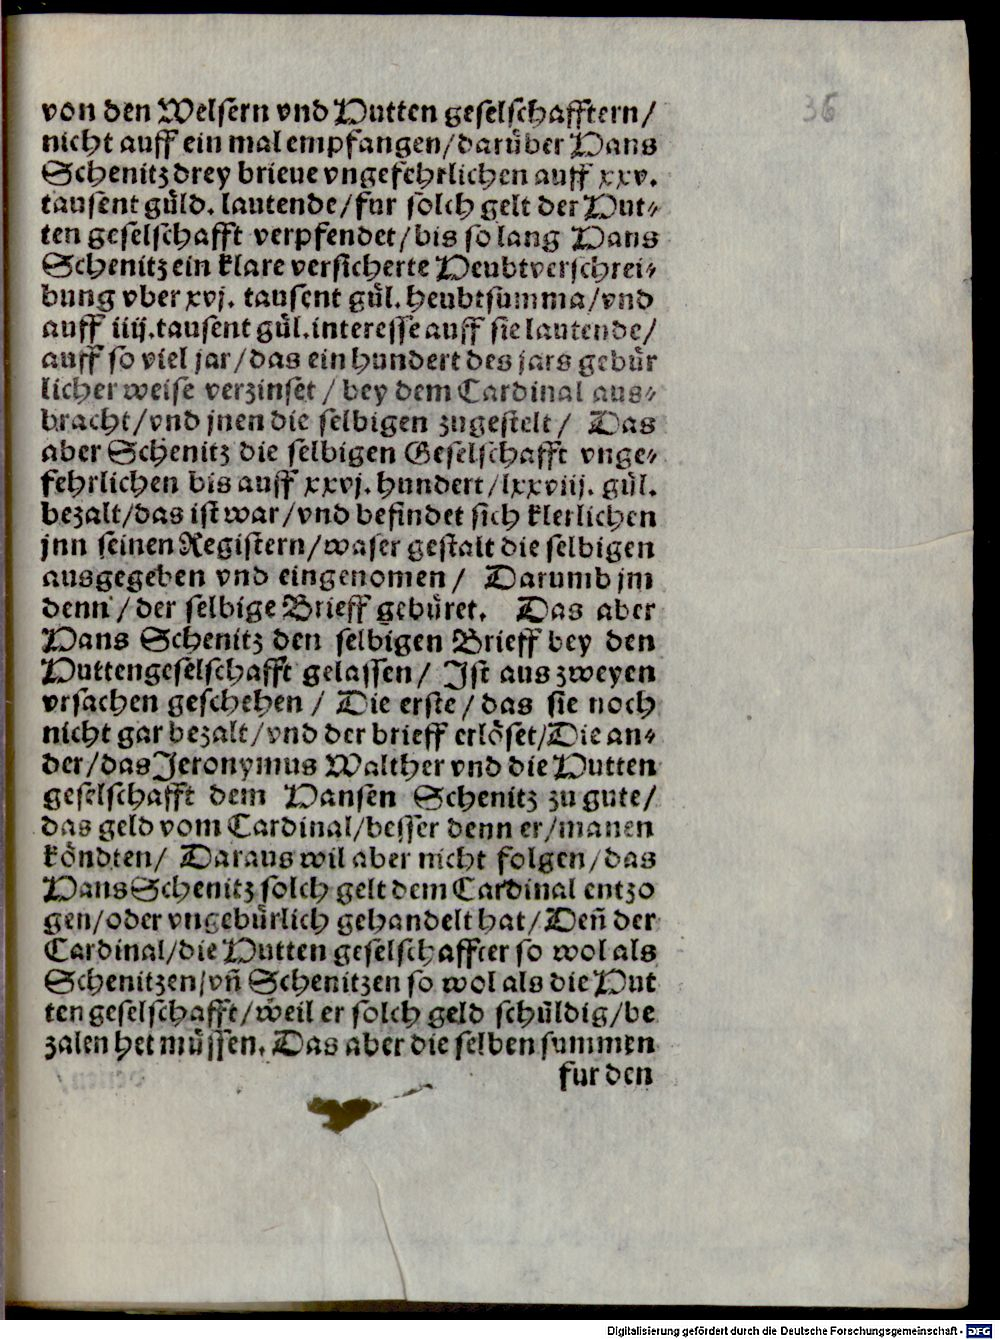 36
von den Welsern vnd Hutten geselschafftern/
nicht auff ein mal empfangen/darüber Hans
Schenitz drey brieue vngefehrlichen auff xxv.
tausent güld. lautende/fur solch gelt der Hut⸗
ten geselschafft verpfendet/bis so lang Hans
Schenitz ein klare versicherte Heubtverschrei⸗
bung vber xvj. tausent gül. heubtsumma/vnd
auff iiij.tausent gül.interesse auff sie lautende/
auff so viel jar/das ein hundert des jars gebür
licher weise verzinset / bey dem Cardinal aus⸗
bracht/vnd jnen die selbigen zugestelt/ Das
aber Schenitz die selbigen Geselschafft vnge⸗
fehrlichen bis auff xxvj. hundert/lxxviij. gül.
bezalt/das ist war/vnd befindet sich klerlichen
jnn seinen Registern/waser gestalt die selbigen
ausgegeben vnd eingenomen/ Darumb jm
denn/der selbige Brieff gebüret. Das aber
Hans Schenitz den selbigen Brieff bey den
Huttengeselschafft gelassen/ Ist aus zweyen
vrsachen geschehen/ Die erste/das sie noch
nicht gar bezalt/vnd der brieff erlöset/Die an⸗
der/das Jeronymus Walther vnd die Hutten
geselschafft dem Hansen Schenitz zu gute/
das geld vom Cardinal/besser denn er/manen
köndten/ Daraus wil aber nicht folgen/das
Hans Schenitz solch gelt dem Cardinal entzo
gen/oder vngebürlich gehandelt hat/Deñ der
Cardinal/die Hutten geselschaffter so wol als
Schenitzen/vñ Schenitzen so wol als die Hut
ten geselschafft/weil er solch geld schüldig/be
zalen het müssen. Das aber die selben summen
fur den
Digitalisierung gefördert durch die Deutsche Forschungsgemeinschaft - DFG